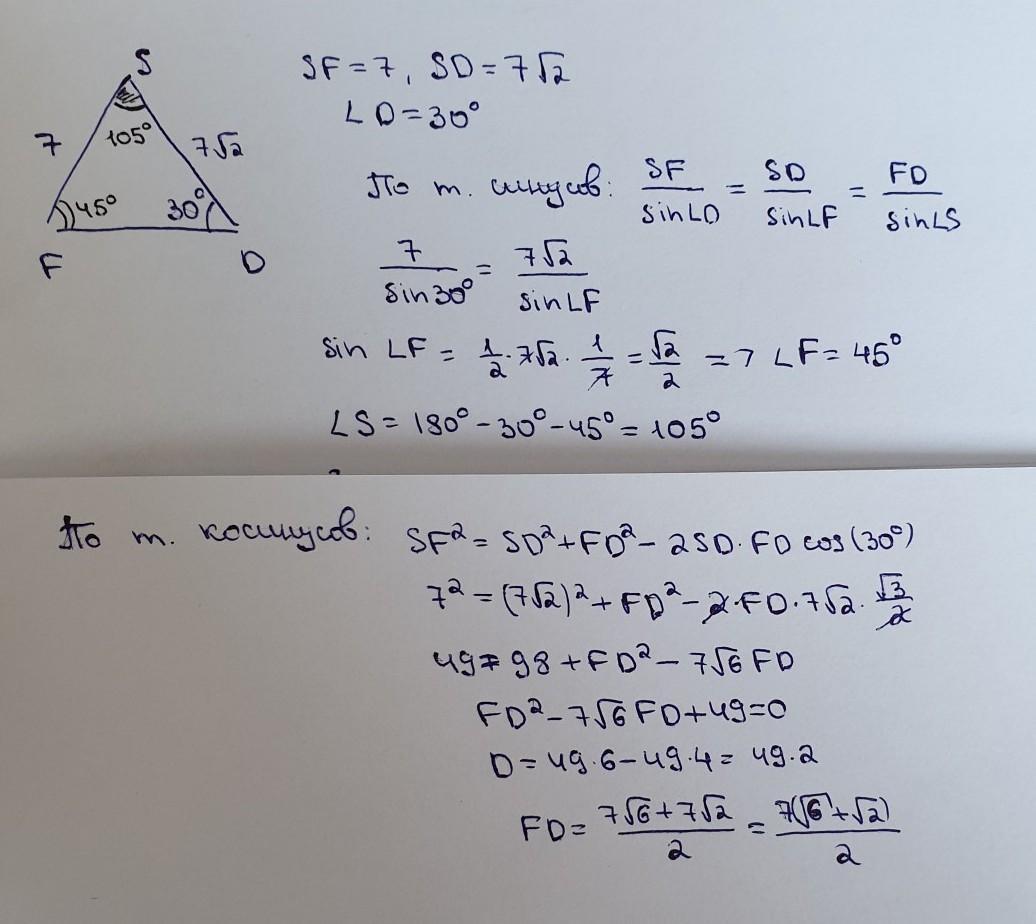 S
7
105°
7√2
45°
30°
F
D
SF = 7, SD = 7√2
∠D = 30°
По т. синусов: SF/sin∠D = SD/sin∠F = FD/sin∠S
7/sin30° = 7√2/sin∠F
sin ∠F = 1/2 · 7√2 · 1/7 = √2/2 => ∠F = 45°
∠S = 180° - 30° - 45° = 105°
По т. косинусов: SF² = SD² + FD² - 2SD · FD cos(30°)
7² = (7√2)² + FD² - 2 · FD · 7√2 · √3/2
49 = 98 + FD² - 7√6 FD
FD² - 7√6 FD + 49 = 0
D = 49·6 - 49·4 = 49·2
FD = (7√6 + 7√2)/2 = 7(√6 + √2)/2